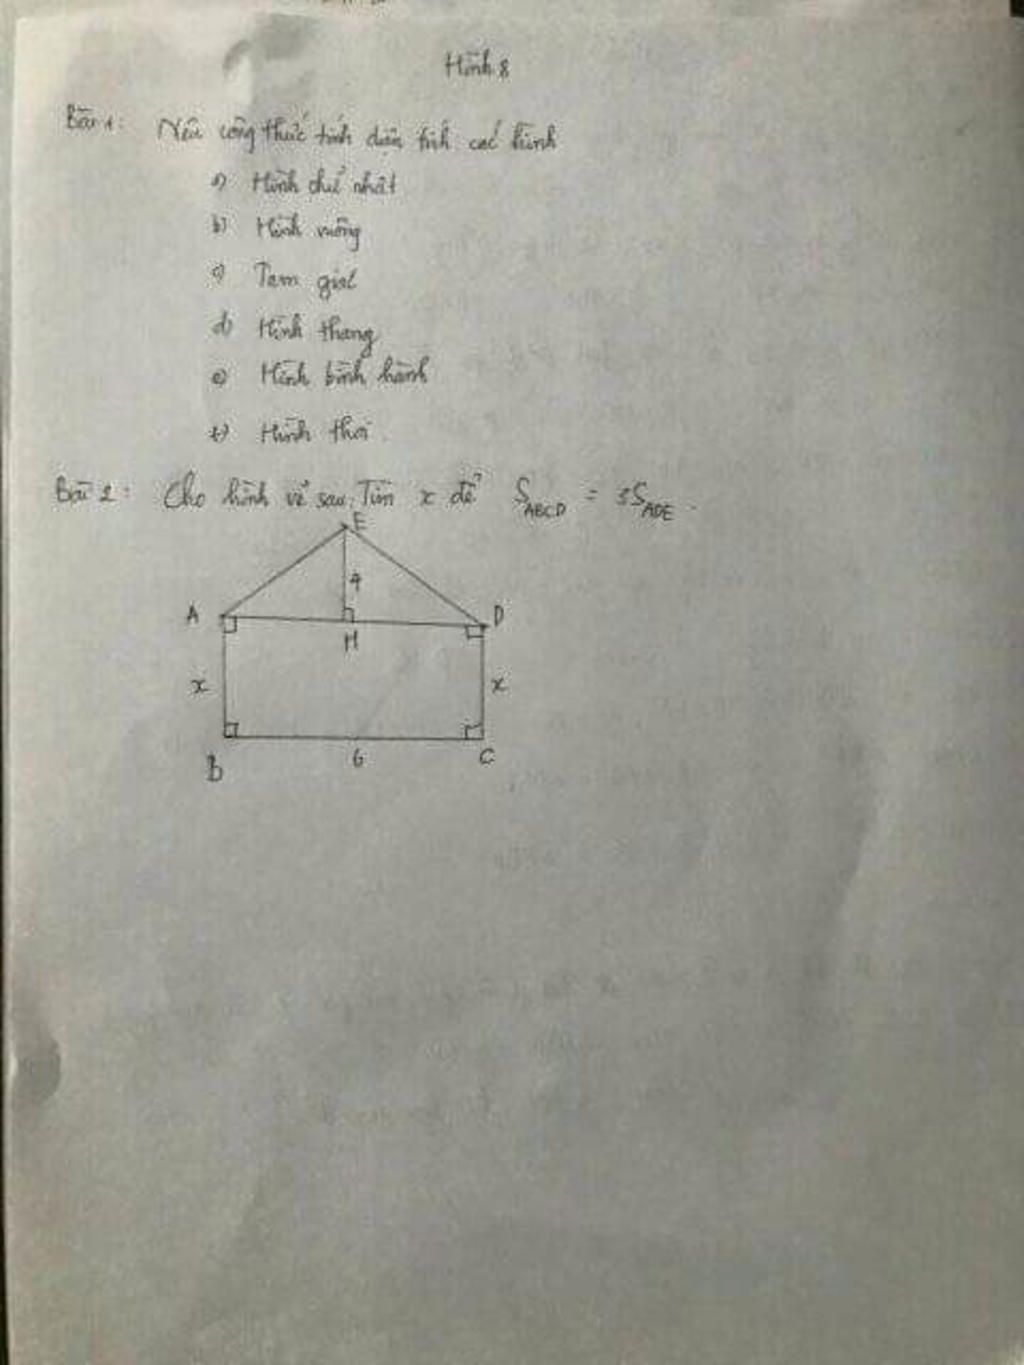 Hình 8
Bài 1: Nêu công thức tính diện tích các hình
a) Hình chữ nhật
b) Hình vuông
c) Tam giác
d) Hình thang
e) Hình bình hành
f) Hình thoi
Bài 2: Cho hình vẽ sau. Tìm x để S_ABCD = 3S_ADE.
E
4
A D
H
x x
B 6 C